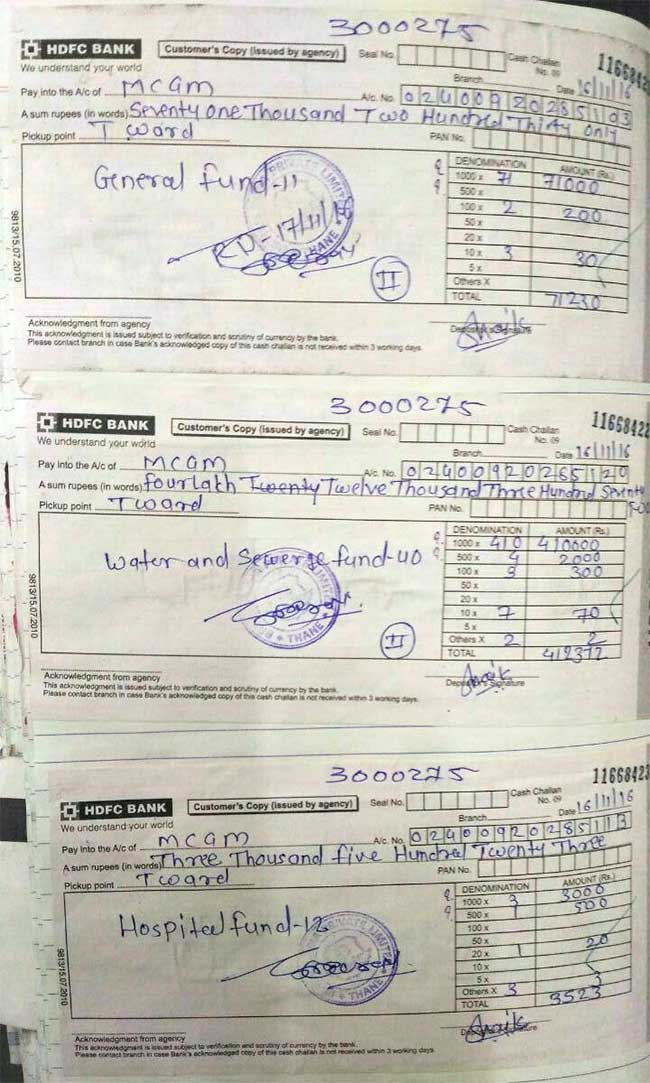 3000275
HDFC BANK Customer's Copy (issued by agency) Seal No. Cash Challan No. 09 1166842
We understand your world Branch Date 16/11/16
Pay into the A/c of MCGM A/c. No. 02400920285103
A sum rupees (in words) Seventy one Thousand Two Hundred Thirty Only
Pickup point T ward PAN No.
DENOMINATION AMOUNT (Rs.)
General fund-11 1000 x 71 71000
500 x
100 x 2 200
50 x
20 x
RD-17/11/16 10 x 3 30
5 x
II Others X
TOTAL 71230
THANE
9813/15.07.2010
Acknowledgment from agency Depositor's Signature
This acknowledgment is issued subject to verification and scrutiny of currency by the bank.
Please contact branch in case Bank's acknowledged copy of this cash challan is not received within 3 working days.
3000275
HDFC BANK Customer's Copy (issued by agency) Seal No. Cash Challan No. 09 11668422
We understand your world Branch Date 16/11/16
Pay into the A/c of MCGM A/c. No. 02400920285120
A sum rupees (in words) four Lakh Twenty Twelve Thousand Three Hundred Seventy
Pickup point T ward PAN No.
DENOMINATION AMOUNT (Rs.)
Water and Sewerge fund-40 1000 x 410 410000
500 x 4 2000
100 x 3 300
50 x
20 x
10 x 7 70
5 x
II Others X 2 2
TOTAL 412372
THANE
9813/15.07.2010
Acknowledgment from agency Depositor's Signature
This acknowledgment is issued subject to verification and scrutiny of currency by the bank.
Please contact branch in case Bank's acknowledged copy of this cash challan is not received within 3 working days.
3000275
HDFC BANK Customer's Copy (issued by agency) Seal No. Cash Challan No. 09 11668423
We understand your world Branch Date 16/11/16
Pay into the A/c of MCGM A/c. No. 02400920285113
A sum rupees (in words) Three Thousand five Hundred Twenty Three
Pickup point T ward PAN No.
DENOMINATION AMOUNT (Rs.)
Hospital fund-12 1000 x 3 3000
500 x 500
100 x
50 x
20 x 1 20
10 x
5 x
Others X 3 3
TOTAL 3523
THANE
9813/15.07.2010
Acknowledgment from agency Depositor's Signature
This acknowledgment is issued subject to verification and scrutiny of currency by the bank.
Please contact branch in case Bank's acknowledged copy of this cash challan is not received within 3 working days.